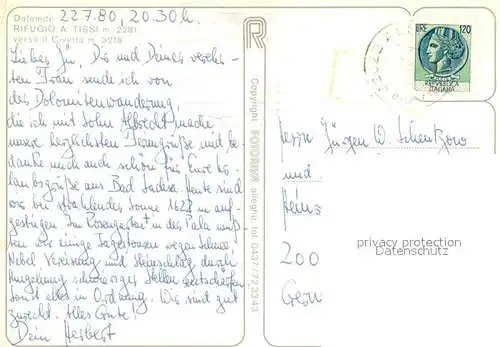 Dolomiti: 22.7.80, 20.30 h.
RIFUGIO A. TISSI m. 2281
verso il Civetta m. 3218
Lieber Jü, Dir und Deiner verehr-
ten Frau sende ich von
der Dolomitenwanderung,
die ich mit Sohn Albrecht mache
unsere herzlichsten Feriengrüße und be-
danke mich auch schön für Eure Ur-
laubsgrüße aus Bad Sachsa. Heute sind
wir bei strahlender Sonne 1628 m auf-
gestiegen. Im Rosengarten + in der Pala muß-
ten wir einige Tagestouren wegen Schnee
Nebel Vereisung und Steinschlag durch
Umgehung schwieriger Stellen entschärfen
sonst alles in Ordnung. Wir sind gut
zurecht. Alles Gute!
Dein Herbert
R
Copyright FOTORIVA
allegno tel. 0437/723343
LIRE 120
REPVBBLICA
ITALIANA
Herrn Jürgen W. Schentzow
und
Heins
200
Germ
privacy protection
Datenschutz